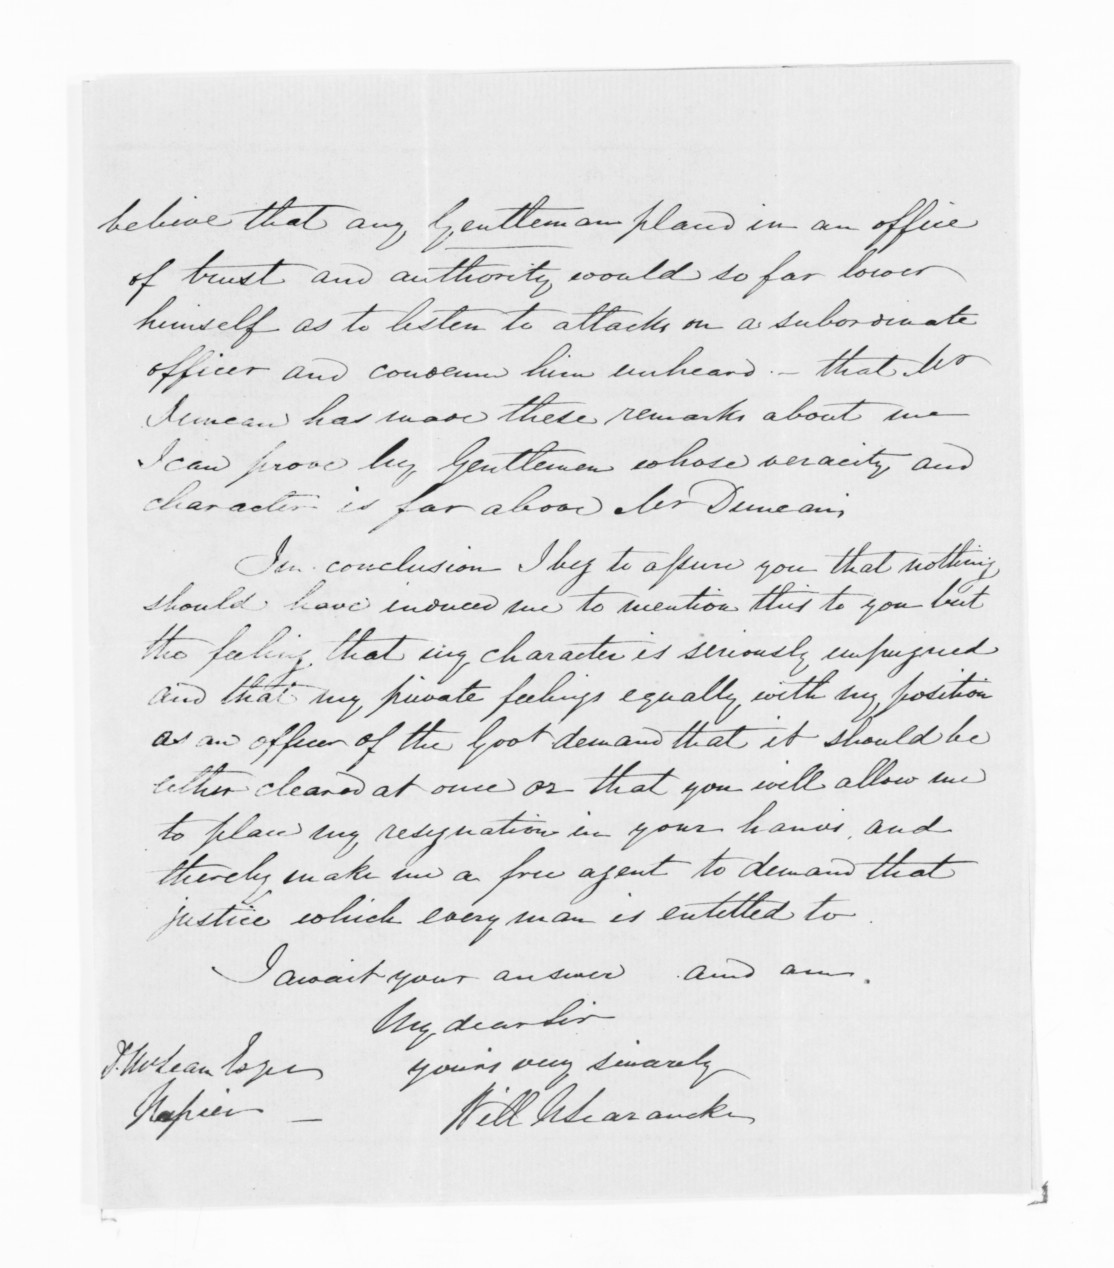 believe that any Gentleman placed in an office
of trust and authority would so far lower
himself as to listen to attacks on a subordinate
officer and condemn him unheard. – that Mr
Duncan has made these remarks about me
I can prove by Gentlemen whose veracity and
character is far above Mr Duncan's
In conclusion I beg to assure you that nothing
should have induced me to mention this to you but
the feeling that my character is seriously impugned
and that my private feelings equally with my position
as an officer of the Govt demand that it should be
either cleared at once or that you will allow me
to place my resignation in your hands, and
thereby make me a free agent to demand that
justice which every man is entitled to.
I await your answer and am.
My dear Sir
yours very sincerely
McLean Esqre
Napier –
Will